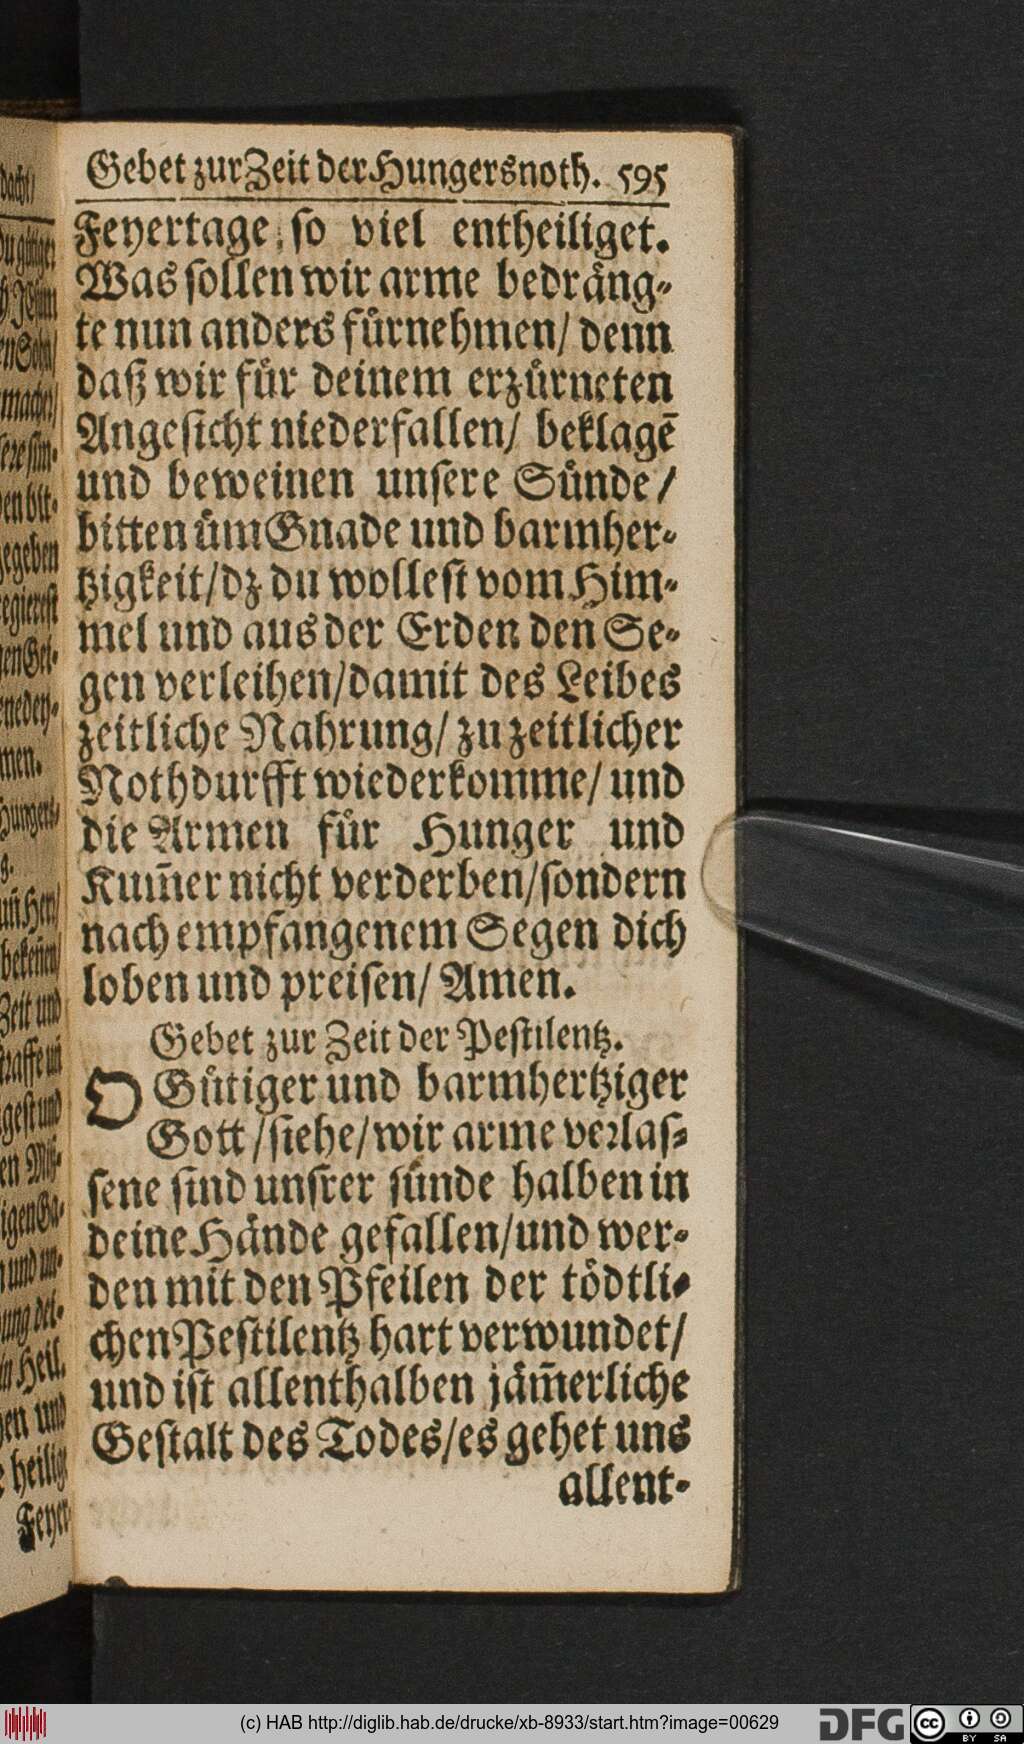 Gebet zur Zeit der Hungersnoth. 595
Feyertage so viel entheiliget.
Was sollen wir arme bedräng-
te nun anders fürnehmen/ denn
daß wir für deinem erzürneten
Angesicht niederfallen/ beklagē
und beweinen unsere Sünde/
bitten üm Gnade und barmher-
tzigkeit/dz du wollest vom Him-
mel und aus der Erden den Se-
gen verleihen/damit des Leibes
zeitliche Nahrung/ zu zeitlicher
Nothdurfft wiederkomme/ und
die Armen für Hunger und
Kum̄er nicht verderben/sondern
nach empfangenem Segen dich
loben und preisen/ Amen.
Gebet zur Zeit der Pestilentz.
O Gütiger und barmhertziger
Gott/siehe/wir arme verlas-
sene sind unsrer sünde halben in
deine Hände gefallen/und wer-
den mit den Pfeilen der tödtli-
chen Pestilentz hart verwundet/
und ist allenthalben jäm̄erliche
Gestalt des Todes/es gehet uns
allent-
(c) HAB http://diglib.hab.de/drucke/xb-8933/start.htm?image=00629
DFG
cc
BY SA